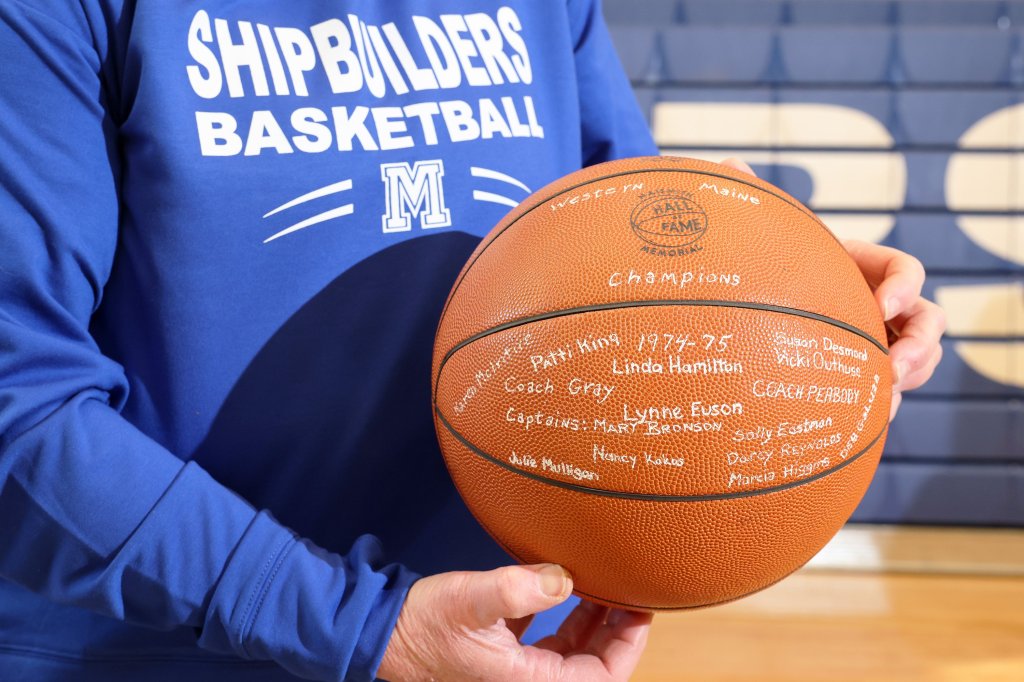 SHIPBUILDERS
BASKETBALL
M
Western Maine
HALL OF FAME
MEMORIAL
Champions
1974-75
Patti King
Linda Hamilton
Susan Desmond
Vicki Outhuse
Coach Gray
COACH PEABODY
Lynne Euson
Captains: MARY BRONSON
Sally Eastman
Nancy Kokoo
Darcy REYNOLDS
Julie Mulligan
Marcia Higgins
DEB